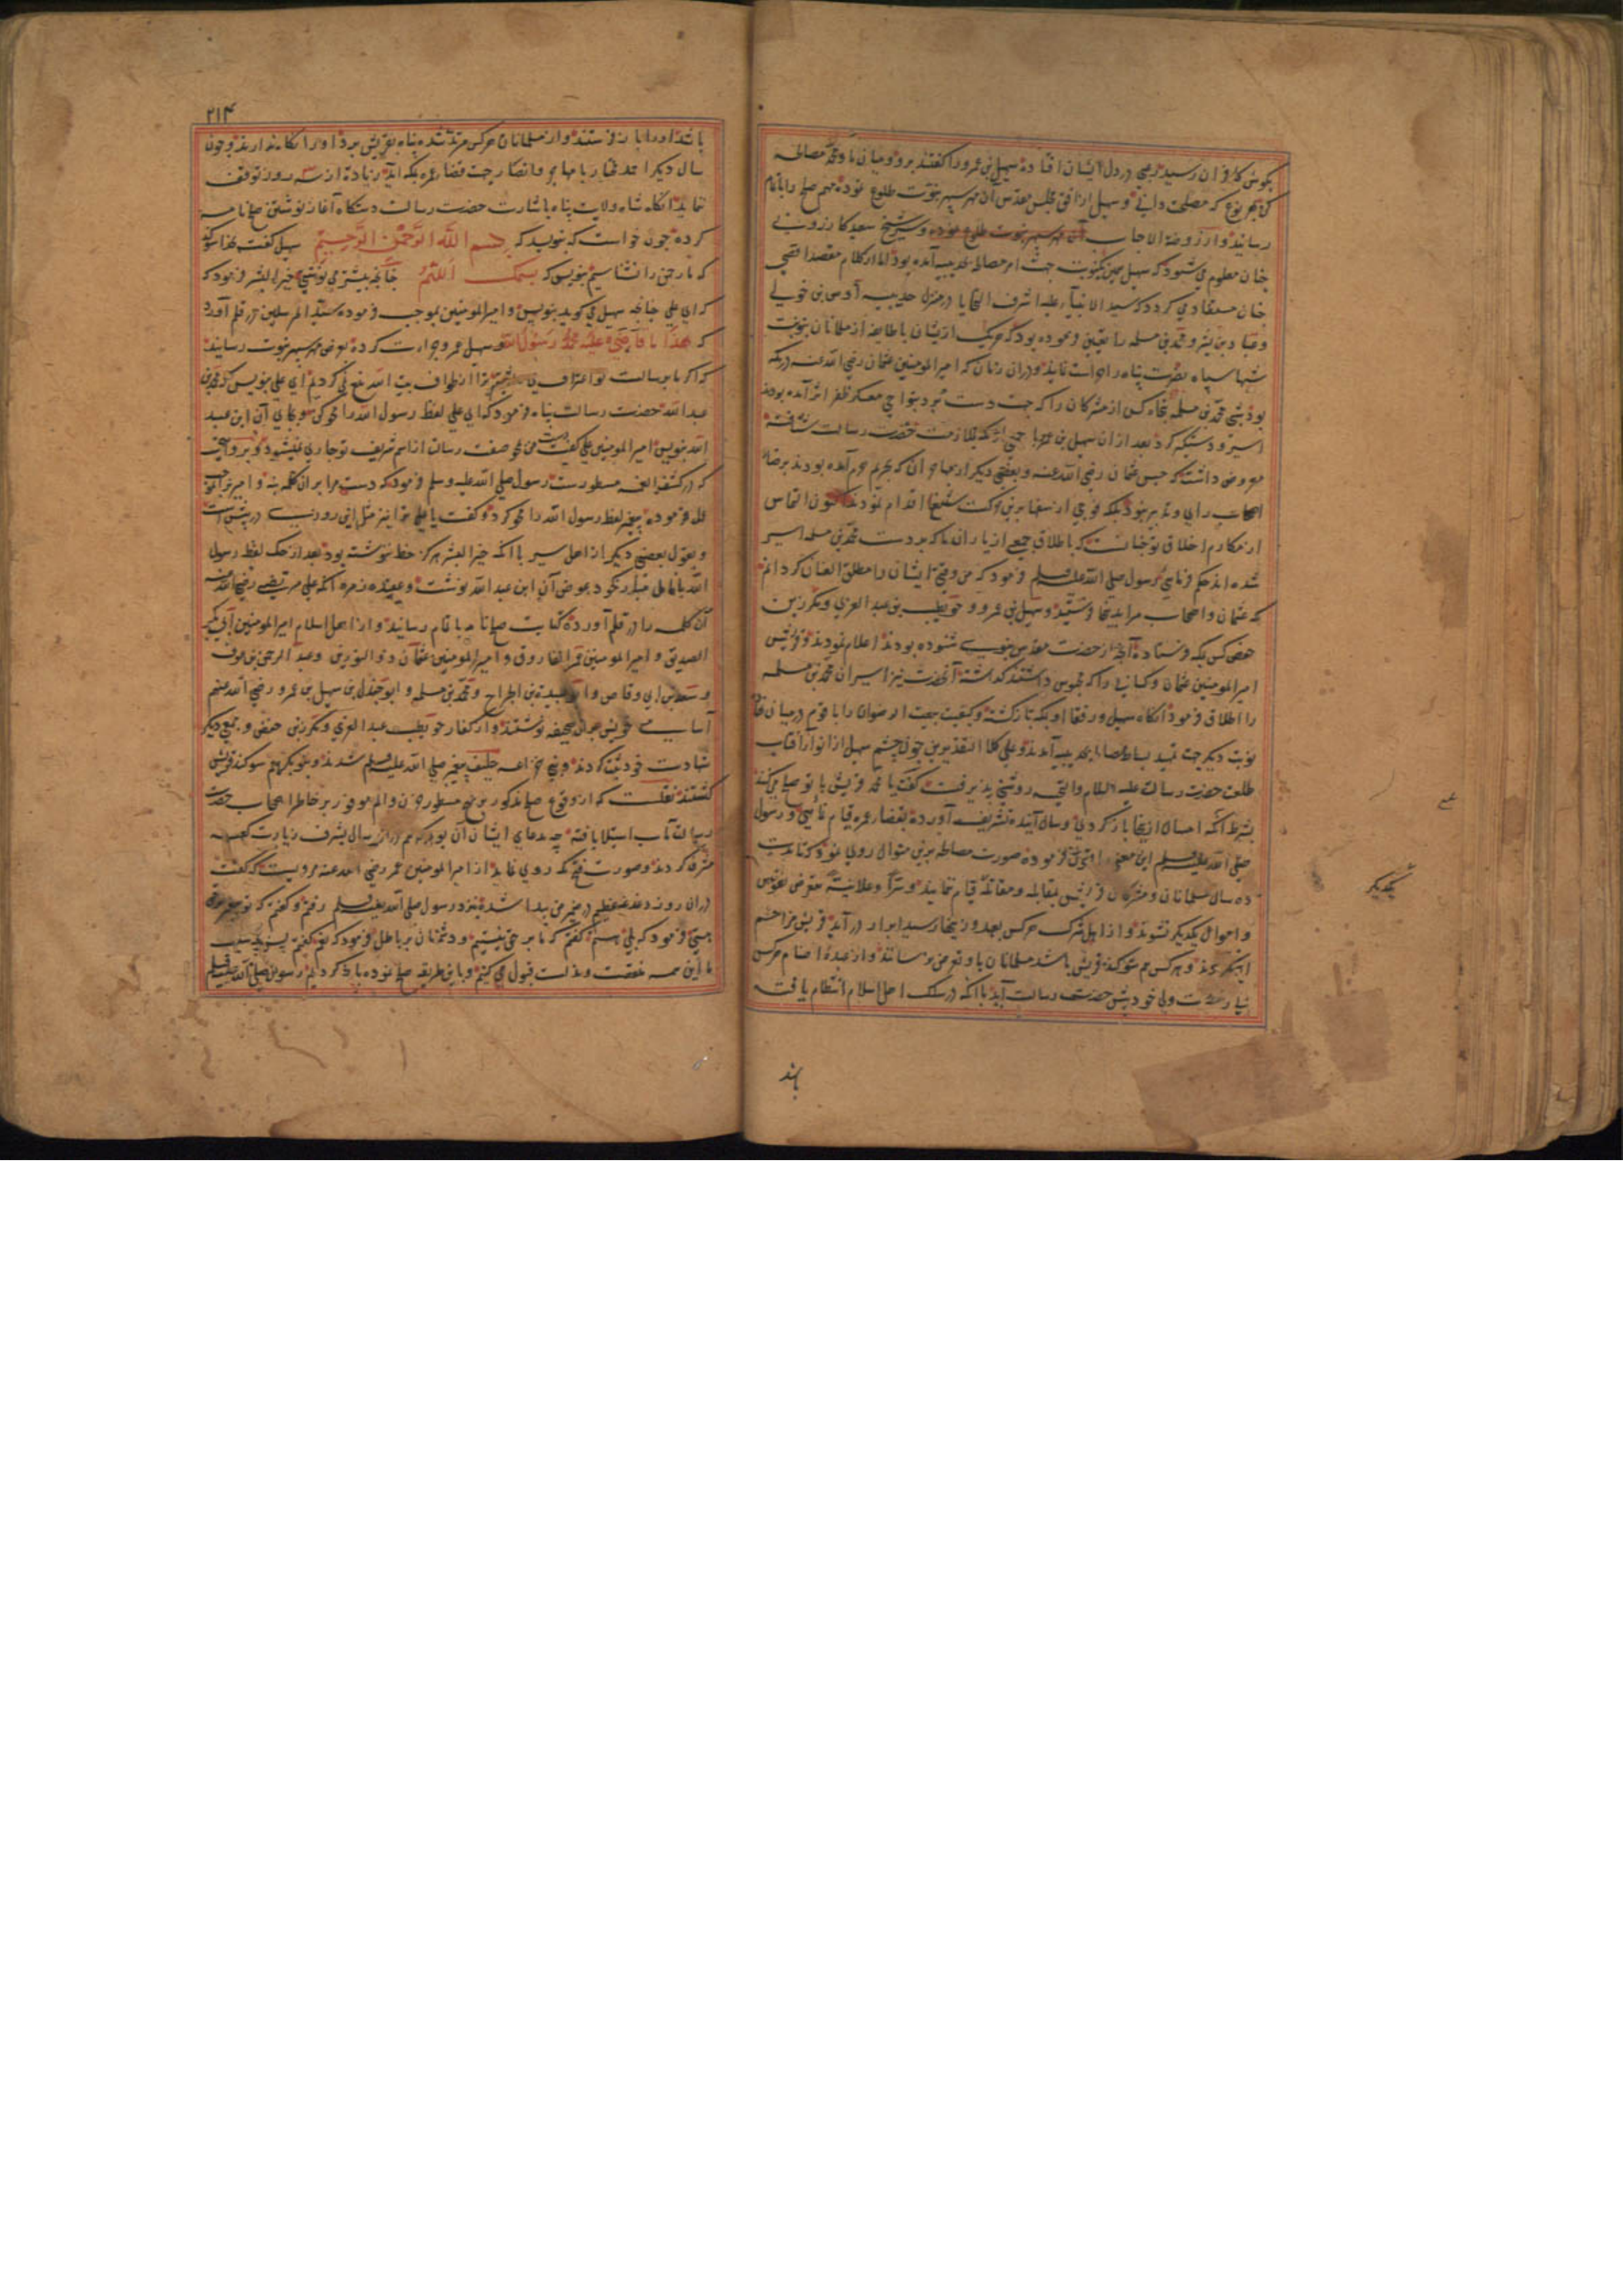 بکوش کافران رسید رعبی در دل ایشان افتاده سهیل بن عمرو را کفتند برو و میان ما و محمد مصالحه
کن بهر نوع که مصلحت دانی و سهیل از افق مجلس مقدس آن مهر سپهر نبوت طلوع نموده مهم صلح را باتمام
رسانید و از روضة الاحباب و شیخ سعید کازرونی
چنان معلوم می شود که سهیل همین یکنوبت جهت امر مصالحه بحدیبیه آمده بود اما از کلام مقصد اقصی
چنان مستفاد می کردد که سید الانبیا علیه اشرف التحایا در منزل حدیبیه اوس بن خولی
و عباد بن بشر و محمد بن مسلمه را تعیین فرموده بود که هر یک ازیشان با طایفه از مسلمانان بنوبت
شبها سپاه نصرت پناه را حراست نمایند و دران زمان که امیر المومنین عثمان رضی الله عنه در مکه
بود شبی محمد بن مسلمه پنجاه کس از مشرکان را که جهت دست برد بنواحی معسکر ظفر اثر آمده بودند
اسیر و دستکیر کرد بعد ازان سهیل بن عمرو با جمعی از مکه بملازمت حضرت رسالت شتافته
معروض داشت که حبس عثمان رضی الله عنه و بعضی دیکر از مهاجران که بحریم حرم آمده بودند برضاء
اصحاب رای و تدبیر نبود بلکه فوجی از سفها برین حرکت شنیع اقدام نمودند اکنون التماس
از مکارم اخلاق تو چنانست که باطلاق جمعی از یاران ما که بر دست محمد بن مسلمه اسیر
شده اند حکم فرمایی رسول صلی الله علیه وسلم فرمود که من وقتی ایشان را مطلق العنان کردانم
که عثمان و اصحاب مرا بدینجا فرستید و سهیل بن عمرو و حویطب بن عبد العزی و مکرز بن
حفص کس بمکه فرستاده آنچه از حضرت مقدس نبوی شنوده بودند اعلام نمودند و قریش
امیر المومنین عثمان و کسانی را که محبوس داشتند کذاشته آنحضرت نیز اسیران محمد بن مسلمه
را اطلاق فرمود آنکاه سهیل و رفقا او بمکه باز کشته و کیفیت بیعت الرضوان را با قوم در میان نهاده
نوبت دیکر جهت تمهید بساط مصالحه بحدیبیه آمدند و علی کلا التقدیرین چون چشم سهیل از انوار آفتاب
طلعت حضرت رسالت علیه السلام والتحیه روشنی پذیرفت کفت یا محمد قریش با تو صلح می کنند
بشرط آنکه امسال از ینجا باز کردی و سال آینده تشریف آورده بقضاء عمره قیام نمایی و رسول
صلی الله علیه وسلم این معنی را قبول فرموده صورت مصالحه برین منوال روی نمود که تا مدت
ده سال مسلمانان و مشرکان قریش بمقابله و مقاتله قیام ننمایند و سرا و علانیة متعرض نفوس
و اموال یکدیکر نشوند و از اهل شرک هر کس بعهد و زینهار سید ابرار در آید قریش مزاحم
او نکردند و هر کس هم سوکند قریش باشد مسلمانان باو تعرض نرسانند و از عبدهٔ اصنام هر کس
بی رخصت ولی خود پیش حضرت رسالت آید با آنکه در سلک اهل اسلام انتظام یافته
یکدیکر
باشد
۲۱۴
باشد او را باز فرستند و از مسلمانان هر کس مرتد شده پناه بقریش برد او را نکاه ندارند و چون
سال دیکر احمد مختار با مهاجر و انصار جهت قضاء عمره بمکه آید زیاده از سه روز توقف
ننماید آنکاه شاه ولایت پناه باشارت حضرت رسالت دستکاه آغاز نوشتن صلح نامه
کرده چون خواست که نویسد که بسم الله الرحمن الرحیم سهیل کفت بخدا سوکند
که ما رحمن را نشناسیم بنویس که بسمک اللهم چنانچه پیشتر می نوشتی خیر البشر فرمود که
که ای علی چنانچه سهیل می کوید بنویس و امیر المومنین بموجب فرموده سید المرسلین در قلم آورد
که هذا ما قاضی علیه محمد رسول الله و سهیل عمرو جرات کرده بعرض مهر سپهر نبوت رسانید
که اکر ما برسالت تو اعتراف می داشتیم ترا از طواف بیت الله منع نمی کردیم ای علی بنویس که محمد بن
عبد الله حضرت رسالت پناه فرمود که ای علی لفظ رسول الله را محو کن و بجای آن ابن عبد
الله بنویس امیر المومنین علی کفت دست من بمحو صفت رسالت از اسم شریف تو جاری نمیشود و بروایتی
که در کشف الغمه مسطورست رسول صلی الله علیه وسلم فرمود که دست مرا بران کلمه نه و امیر بر آنموجب
عمل فرموده پیغمبر لفظ رسول الله را محو کرد و کفت یا علی ترا نیز مثل این روزی در پیش است
و بقول بعضی دیکر از اهل سیر با آنکه خیر البشر هرکز خط ننوشته بود بعد از حک لفظ رسول
الله بانامل مبارک خود بعوض آن ابن عبد الله نوشت و عقیده زمره آنکه علی مرتضی رضی الله عنه
آن کلمه را در قلم آورده کتابت صلح نامه باتمام رسانید و از اهل اسلام امیر المومنین ابی بکر
الصدیق و امیر المومنین عمر الفاروق و امیر المومنین عثمان ذو النورین و عبد الرحمن بن عوف
و سعد بن ابی وقاص و ابو عبیدة بن الجراح و محمد بن مسلمه و ابو جندل بن سهیل بن عمرو رضی الله عنهم
اسامی خویش بران صحیفه نوشتند و از کفار حویطب عبد العزی و مکرز بن حفص و جمعی دیکر
شهادت خود ثبت کردند و بنی خزاعه حلیف پیغمبر صلی الله علیه وسلم شدند و بنو بکر هم سوکند قریش
کشتند نقلست که از وقوع صلح مذکور برین نهج مسطور حزن و الم موفور بر خاطر اصحاب حضرت
رسالت مآب استیلا یافته چه مدعای ایشان آن بود که هم دران سال بشرف زیارت کعبه
مشرف کردند و صورت فتح مکه روی نماید از امیر المومنین عمر رضی الله عنه مرویست که کفت
دران روز دغدغه عظیم در ضمیر من پیدا شده نزد رسول صلی الله علیه وسلم رفتم و کفتم که تو پیغمبر
نیستی فرمود که بلی هستم کفتم که ما بر حق نیستیم و دشمنان بر باطل فرمود که نعم کفتم پس بچه سبب
ما این همه خفت و مذلت قبول می کنیم و باین طریقه صلح نموده باز کردیم رسول صلی الله علیه وسلم